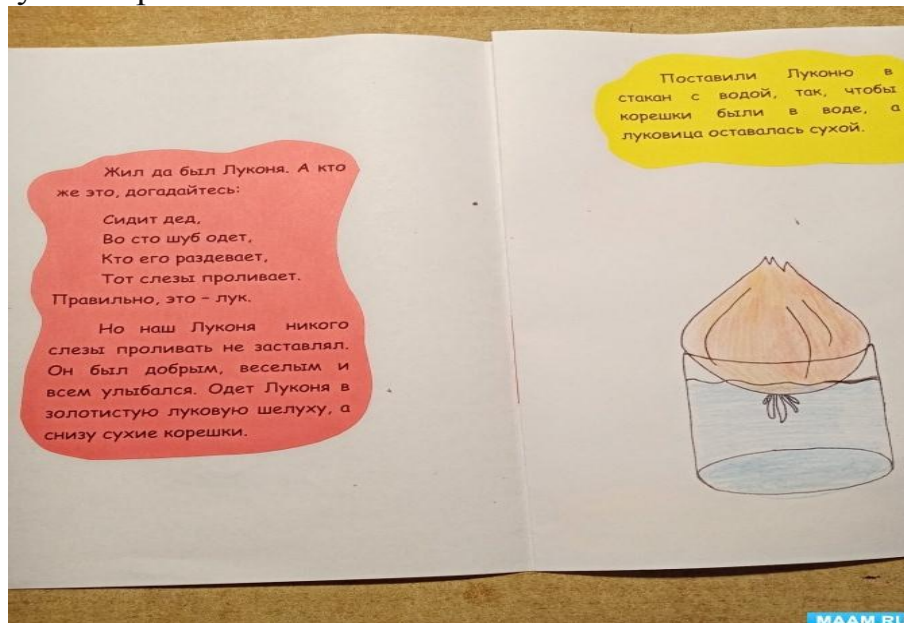 Жил да был Луконя. А кто
же это, догадайтесь:
Сидит дед,
Во сто шуб одет,
Кто его раздевает,
Тот слезы проливает.
Правильно, это – лук.
Но наш Луконя никого
слезы проливать не заставлял.
Он был добрым, веселым и
всем улыбался. Одет Луконя в
золотистую луковую шелуху, а
снизу сухие корешки.
Поставили Луконю в
стакан с водой, так, чтобы
корешки были в воде, а
луковица оставалась сухой.
MAAM.RU